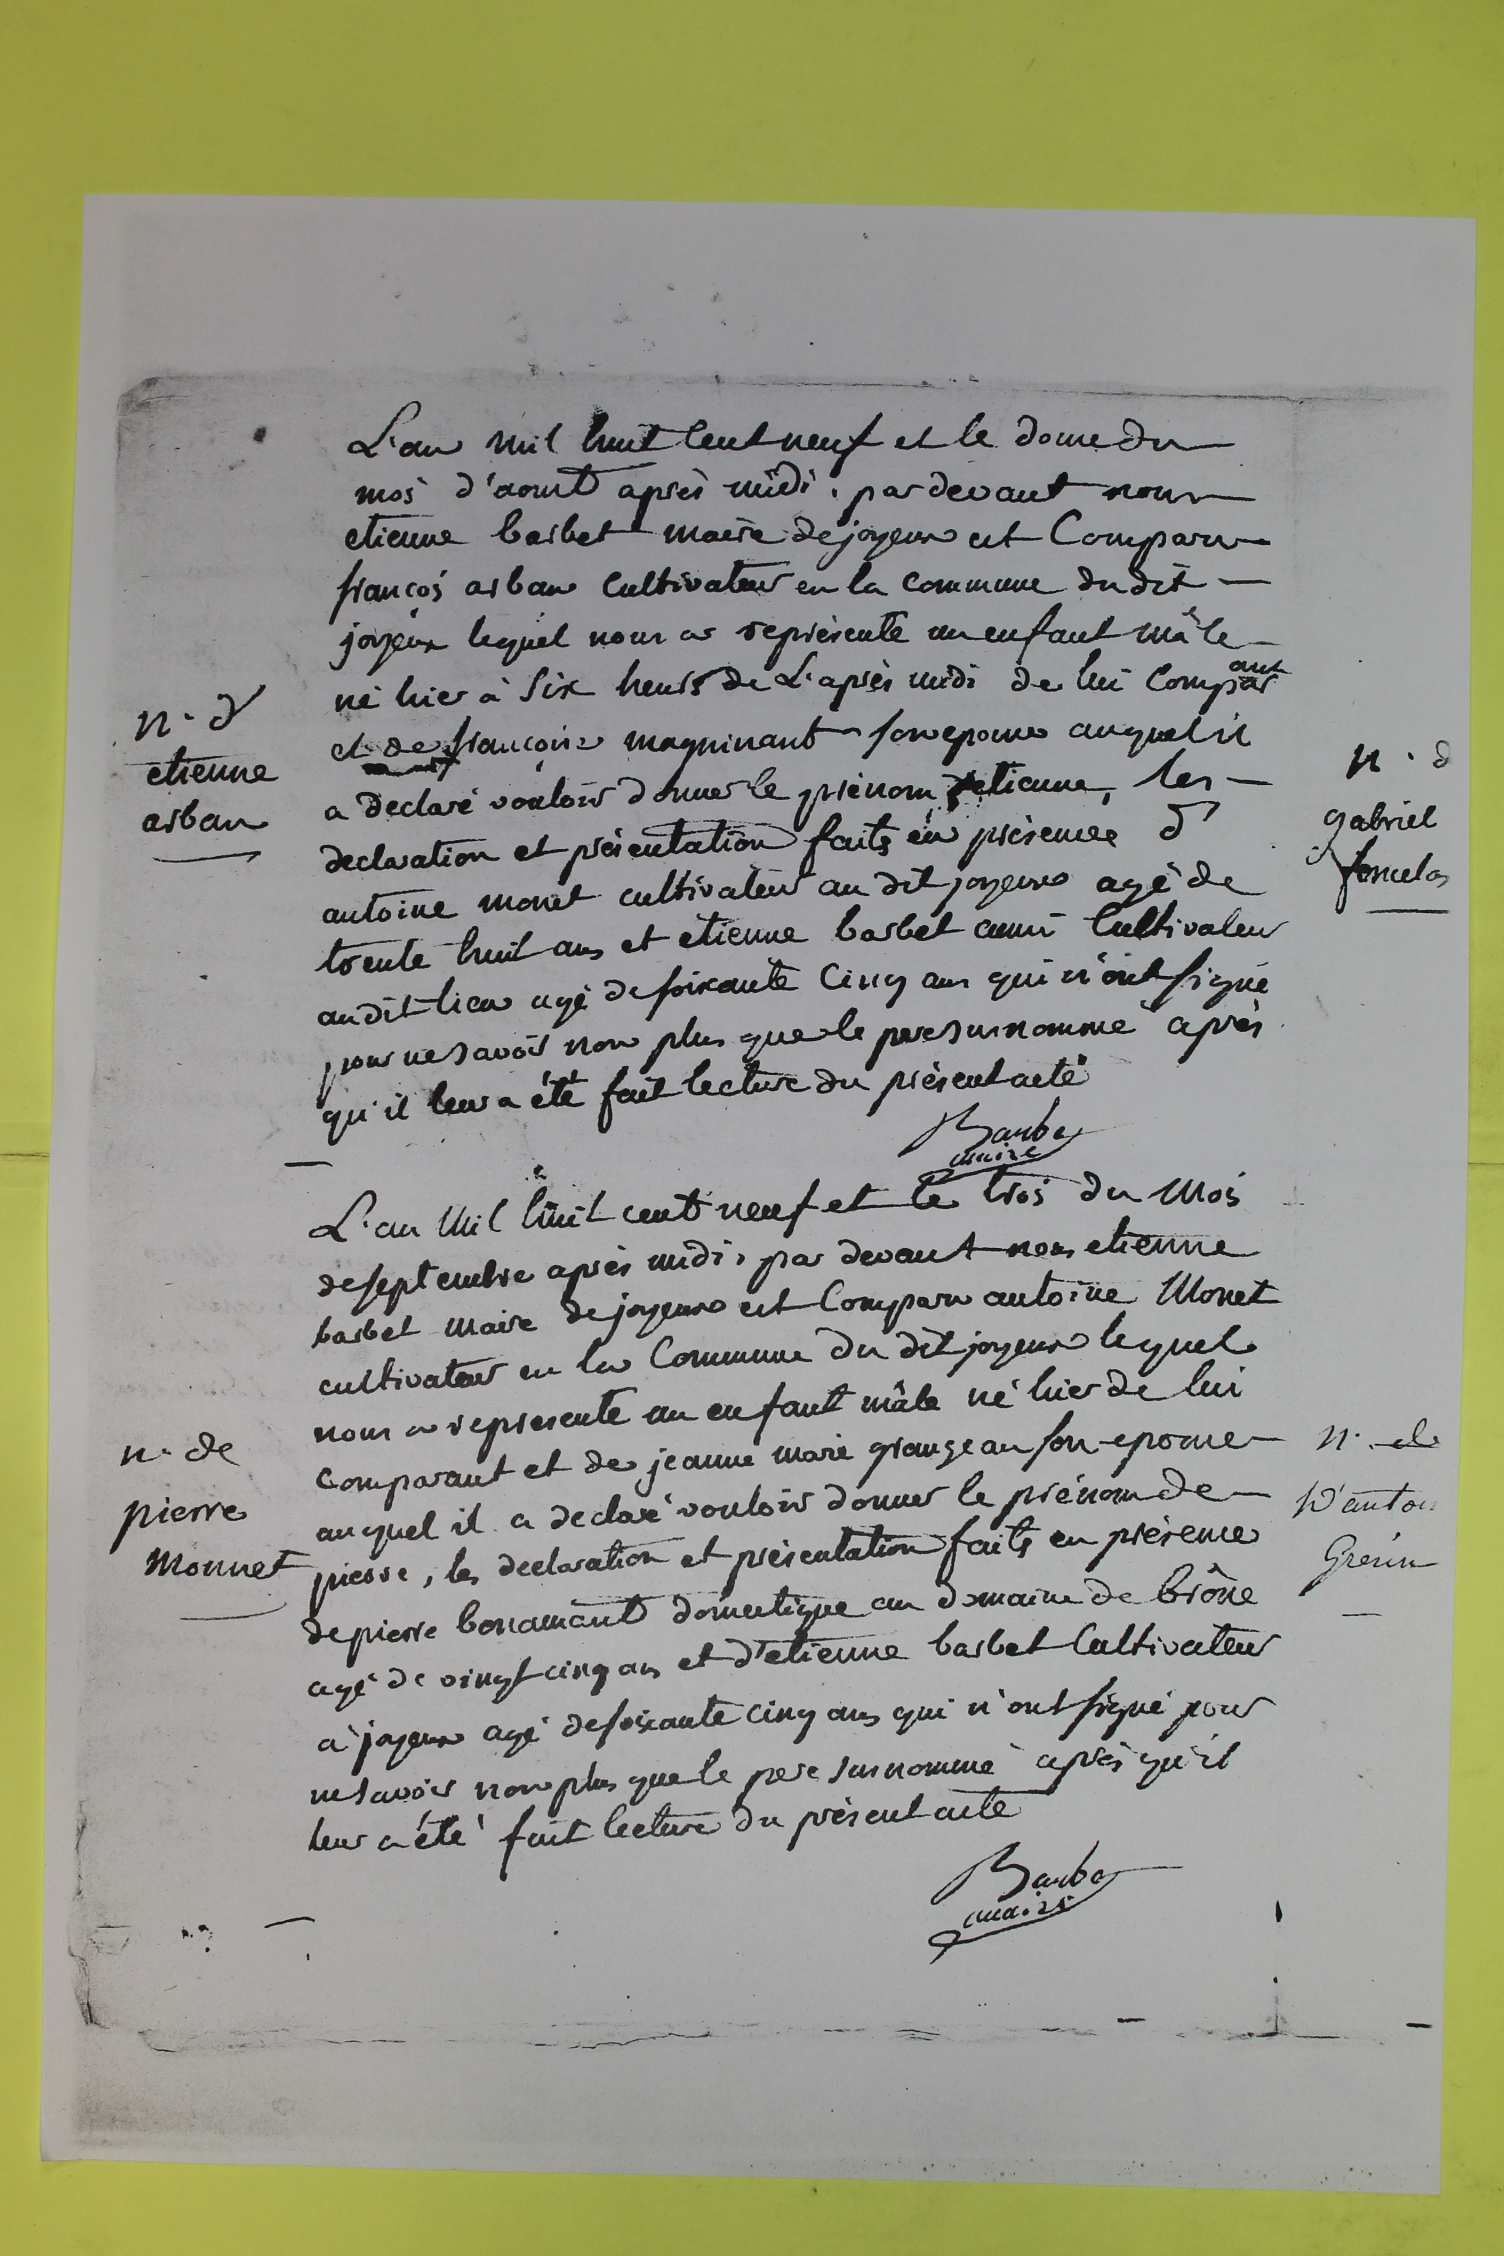 L'an mil huit cent neuf et le douze du
mois d'aout après midi, par devant nous
etienne barbet maire de joyeux est Comparu
françois arban Cultivateur en la Commune du dit
joyeux lequel nous a représenté un enfant mâle
né hier à Six heures de L'après midi de lui Comparant
et de françoise magninant son epouse auquel il
a déclaré vouloir donner le prénom d'etienne, les
declaration et présentation faits en présence d'
antoine monet cultivateur au dit joyeux agé de
trente huit ans et etienne barbet aussi Cultivateur
au dit lieu agé de soixante Cinq ans qui n'ont signé
pour ne savoir non plus que le pere susnommé après
qu'il leur a été fait lecture du présent acte
Barbet
maire
n. d'
etienne
arban
n. d
gabriel
L'an Mil huit cent neuf et le trois du Mois
de septembre après midi, par devant nous etienne
barbet maire de joyeux est Comparu antoine Monet
cultivateur en la Commune du dit joyeux lequel
nous a représenté un enfant mâle né hier de lui
Comparant et de jeanne marie grangean son epouse
auquel il a declaré vouloir donner le prénom de
pierre, les declaration et présentation faits en présence
de pierre bonamant domestique au domaine de brône
agé de vingt cinq ans et d'etienne barbet Cultivateur
à joyeux agé de soixante cinq ans qui n'ont signé pour
ne savoir non plus que le pere susnommé après qu'il
leur a été fait lecture du présent acte
Barbet
maire
n. de
pierre
Monnet
n. de